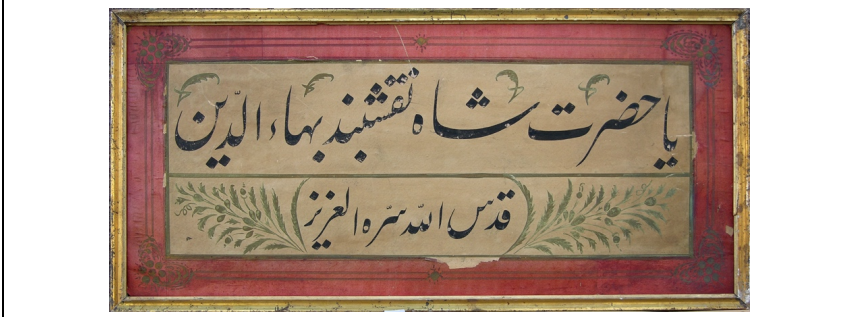 يا حضرت شاه نقشبند بهاء الدّين
قدّس اللّه سرّه العزيز